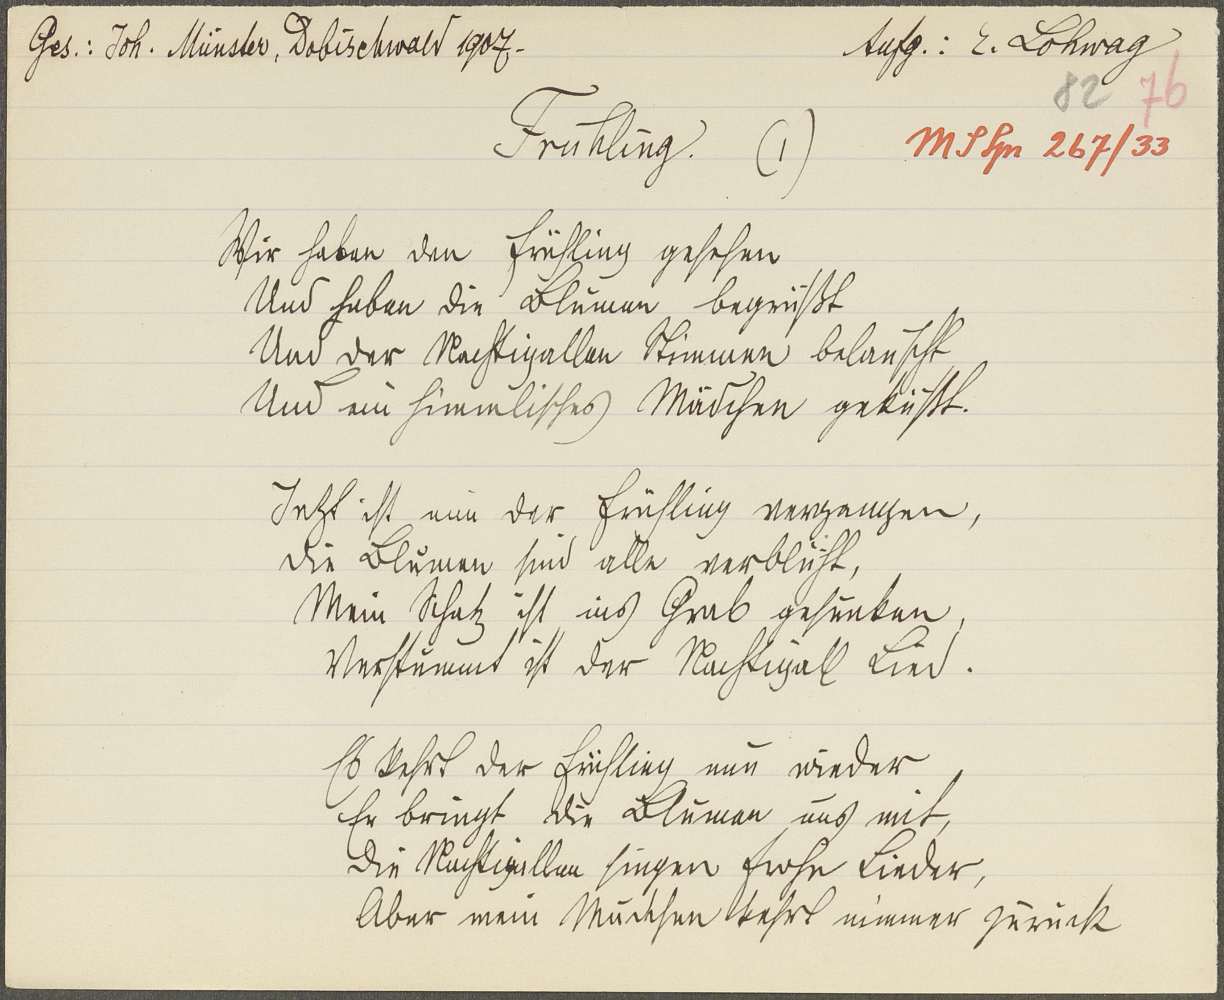 Ges.: Joh. Münster, Dobischwald 1907.-
Aufg.: E. Lohwag
82 76
Frühling. (1)
267/33
Wir haben den Frühling gesehen
Und haben die Blumen begrüßt
Und der Nachtigallen Stimmen belauscht
Und ein himmlisches Mädchen geküßt.
Jetzt ist nun der Frühling vergangen,
Die Blumen sind alle verblüht,
Mein Schatz ist ins Grab gesunken,
Verstummt ist der Nachtigall Lied.
Es kehrt der Frühling nun wieder
Er bringt die Blumen uns mit,
Die Nachtigallen singen frohe Lieder,
Aber mein Mädchen kehrt nimmer zurück